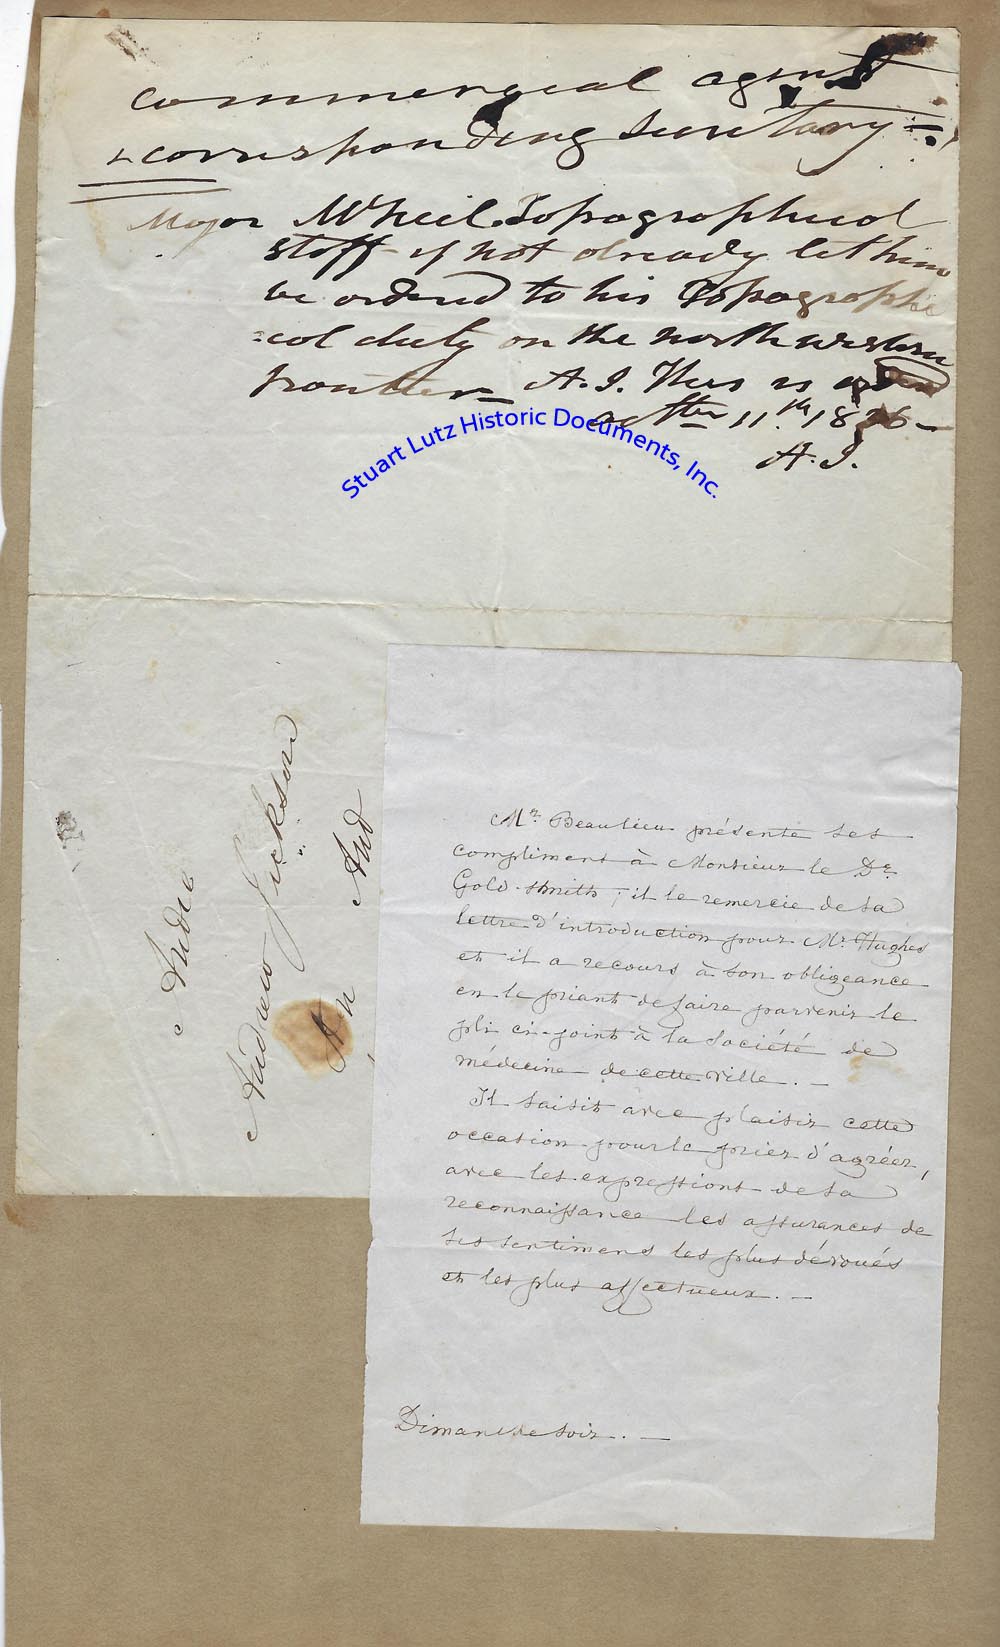 commercial agent
& corresponding secretary—
Major McNeil Topographical
staff— if not already let him
be ordered to his Topographi
=col duty on the north western
frontier— A.J. This is
11th. 1836—
A.J.
Stuart Lutz Historic Documents, Inc.
Andrew
Andrew Jackson
An
And
Mr. Beaulieu présente ses
compliment à Monsieur le Dr.
Gold-smith; il le remercie de sa
lettre d'introduction pour Mr. Hughes
et il a recours à son obligeance
en le priant de faire parvenir le
pli ci-joint à la Société de
médecine de cette ville. —
Il saisit avec plaisir cette
occasion pour le prier d'agréer,
avec les expressions de sa
reconnaissance les assurances de
ses sentimens les plus dévoués
et les plus affectueux. —
Dimanche soir. —